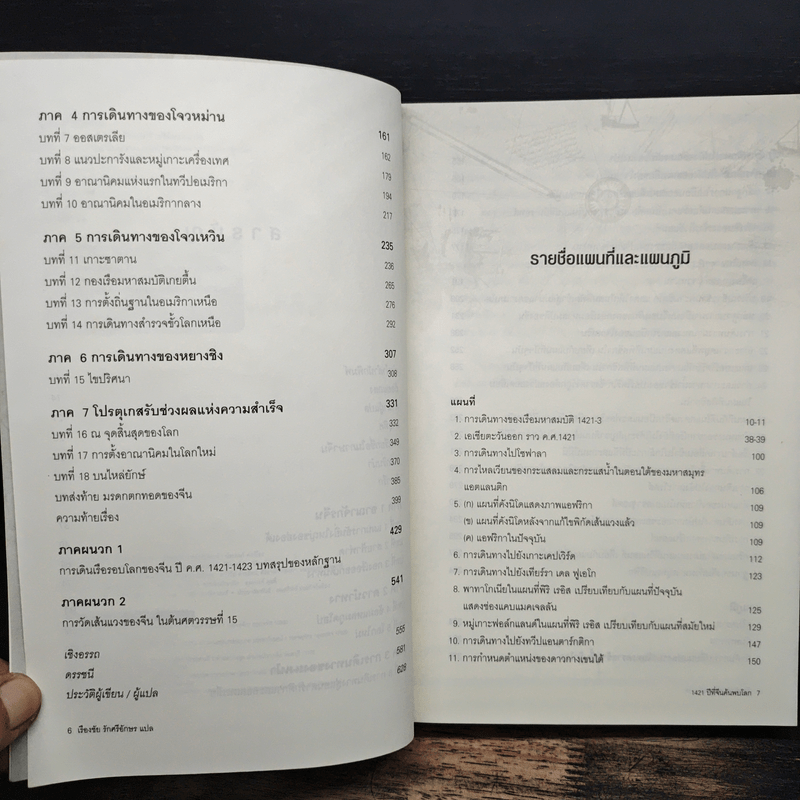 ภาค 4 การเดินทางของโจวหม่าน 161
บทที่ 7 ออสเตรเลีย 162
บทที่ 8 แนวปะการังและหมู่เกาะเครื่องเทศ 179
บทที่ 9 อาณานิคมแห่งแรกในทวีปอเมริกา 194
บทที่ 10 อาณานิคมในอเมริกากลาง 217
ภาค 5 การเดินทางของโจวเหวิน 235
บทที่ 11 เกาะซาตาน 236
บทที่ 12 กองเรือมหาสมบัติเกยตื้น 265
บทที่ 13 การตั้งถิ่นฐานในอเมริกาเหนือ 276
บทที่ 14 การเดินทางสำรวจขั้วโลกเหนือ 292
ภาค 6 การเดินทางของหยางชิง 307
บทที่ 15 ไขปริศนา 308
ภาค 7 โปรตุเกสรับช่วงผลแห่งความสำเร็จ 331
บทที่ 16 ณ จุดสิ้นสุดของโลก 332
บทที่ 17 การตั้งอาณานิคมในโลกใหม่ 349
บทที่ 18 บนไหล่ยักษ์ 370
บทส่งท้าย มรดกตกทอดของจีน 385
ความท้ายเรื่อง 399
ภาคผนวก 1 429
การเดินเรือรอบโลกของจีน ปี ค.ศ. 1421-1423 บทสรุปของหลักฐาน
ภาคผนวก 2 541
การวัดเส้นแวงของจีน ในต้นศตวรรษที่ 15
เชิงอรรถ 555
ดรรชนี 581
ประวัติผู้เขียน / ผู้แปล 629
6 เรืองชัย รักศรีอักษร แปล
รายชื่อแผนที่และแผนภูมิ
แผนที่
1. การเดินทางของเรือมหาสมบัติ 1421-3 10-11
2. เอเชียตะวันออก ราว ค.ศ.1421 38-39
3. การเดินทางไปโซฟาลา 100
4. การไหลเวียนของกระแสลมและกระแสน้ำในตอนใต้ของมหาสมุทร
แอตแลนติก 106
5. (ก) แผนที่คังนิโดแสดงภาพแอฟริกา 109
(ข) แผนที่คังนิโดหลังจากแก้ไขพิกัดเส้นแวงแล้ว 109
(ค) แอฟริกาในปัจจุบัน 109
6. การเดินทางไปยังเกาะเคปเวิร์ด 112
7. การเดินทางไปยังเทียร์รา เดล ฟูเอโก 123
8. พาทาโกเนียในแผนที่พิริ เรอิส เปรียบเทียบกับแผนที่ปัจจุบัน
แสดงช่องแคบแมคเจลลัน 125
9. หมู่เกาะฟอล์กแลนด์ในแผนที่พิริ เรอิส เปรียบเทียบกับแผนที่สมัยใหม่ 129
10. การเดินทางไปยังทวีปแอนตาร์กติกา 147
11. การกำหนดตำแหน่งของดาวกางเขนใต้ 150
1421 ปีที่จีนค้นพบโลก 7